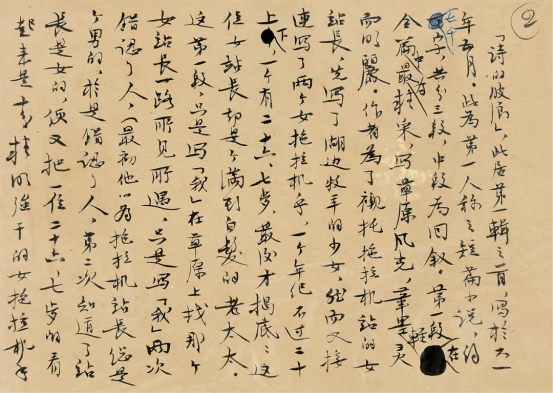 ②
「詩的波浪」,此居第一輯之首,寫於六一
年五月。此為第一人称之短篇小説,約
七千字,共分三段,中段為回叙。第一段在
全篇中最為精采,写草原風光,筆墨輕灵
而明麗。作者為了襯托拖拉机站的女
站長,先写了湖边牧羊的少女,继而又接
連寫了两个女拖拉机手,一个年纪不过二十
上下,一个有二十六、七岁,最后才揭底:这
位女站長却是个满头白髮的老太太。
这第一段,只是写「我」在草原上找那个
女站長一路所見所遇,只是写「我」两次
錯認了人,(最初他以為拖拉机站長總是
个男的,於是錯認了人,第二次知道了站
長是女的,便又把一位二十六、七岁的看
起来是精明強干的女拖拉机手